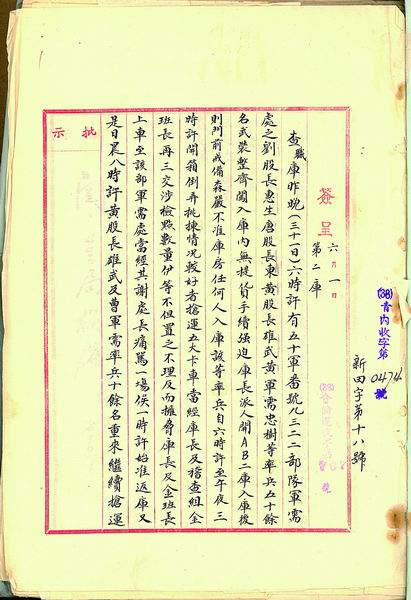 新田字第十八號
(38)青內收字第
0474
號
簽呈 六月一日
第二庫
查職庫昨晚(三十一日)六時許有五十軍番號九三二一部隊軍需
處之劉股長惠生唐股長東黃股長雄武黃軍需忠樹等率兵五十餘
名武裝整齊闖入庫內無提貨手續强迫庫長派人開AB二庫入庫後
則門前戒備森嚴不准庫房任何人入庫該等率兵自六時許至午夜三
時許開箱倒弄挑揀情況較好者搶運五大卡車當經庫長及稽查組全
班長再三交涉檢點數量伊等不但置之不理反而擁脅庫長及金班長
上車至該部軍需處當經其謝處長痛罵一場俟一時許始准返庫又
是日晨八時許黃股長雄武及曹軍需率兵十餘名重來繼續搶運
批示